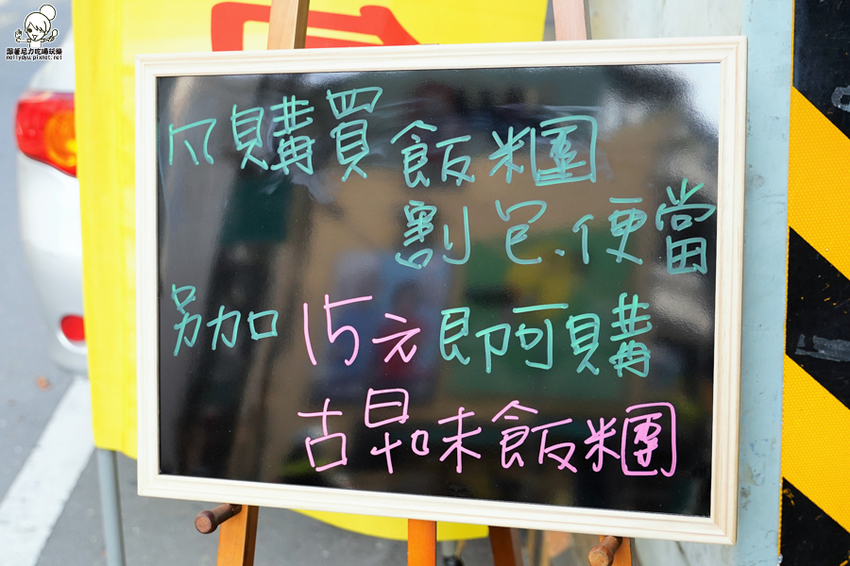 跟著尼力吃喝玩樂
nellydyu.pixnet.net
凡購買飯糰
割包、便當
另加15元即可購
古早味飯糰